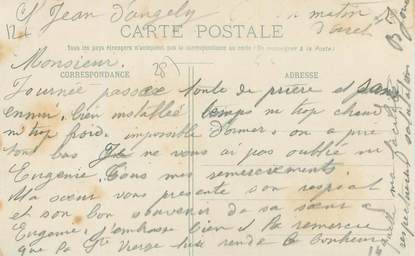 St Jean d'angely
CARTE POSTALE
Tous les pays étrangers n'acceptent pas la correspondance au recto (Se renseigner à la Poste)
Monsieur.
CORRESPONDANCE
ADRESSE
Journée passée toute de prière et sans
ennui, bien installée temps ni trop chaud
ni trop froid. impossible d'ormer, on a prié
tout bas Je ne vous ai pas oublié ni
Eugenie. Tous mes remerciements
Ma sœur vous présente son respect
et son bon souvenir de sa sœur à
Eugenie, j'embrasse bien et la remercie
que la Ste Vierge lui rende le bonheur